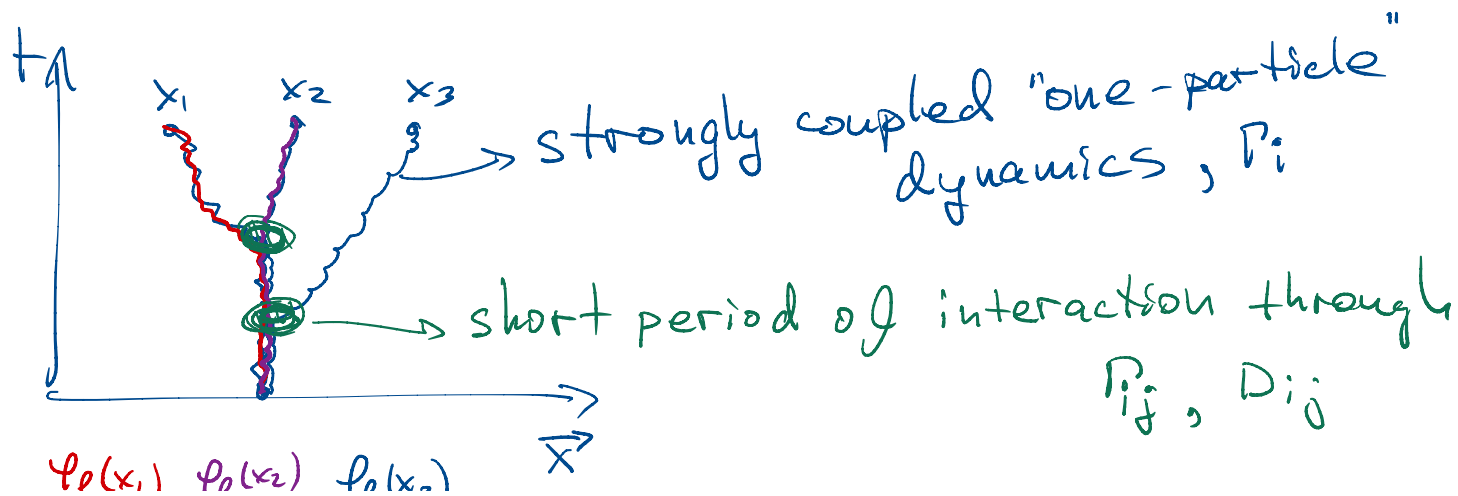 t
x₁ x₂ x₃
strongly coupled "one-particle"
dynamics, Γᵢ
short period of interaction through
Γᵢⱼ, Dᵢⱼ
x⃗
φₗ(x₁) φₗ(x₂) φₗ(x₃)